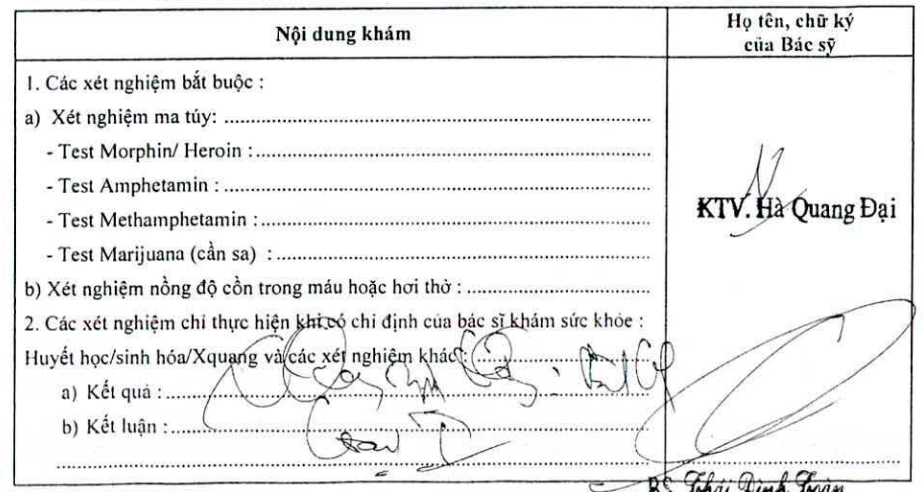 Nội dung khám
Họ tên, chữ ký
của Bác sỹ
1. Các xét nghiệm bắt buộc :
a) Xét nghiệm ma túy: ..........
- Test Morphin/ Heroin :..........
- Test Amphetamin : ..........
- Test Methamphetamin :..........
- Test Marijuana (cần sa) :..........
b) Xét nghiệm nồng độ cồn trong máu hoặc hơi thở : ..........
KTV. Hà Quang Đại
2. Các xét nghiệm chỉ thực hiện khi có chỉ định của bác sĩ khám sức khỏe :
Huyết học/sinh hóa/Xquang và các xét nghiệm khác:..........
a) Kết quả :..........
b) Kết luận :..........
BS Thái Đình Toàn